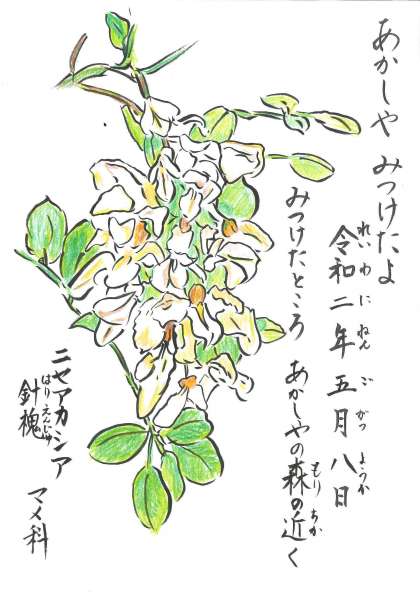 あかしや みつけたよ
令和二年 五月 八日
れいわにねん ごがつ ようか
みつけたところ あかしやの森の近く
もり ちか
ニセアカシア
針槐
はりえんじゅ
マメ科